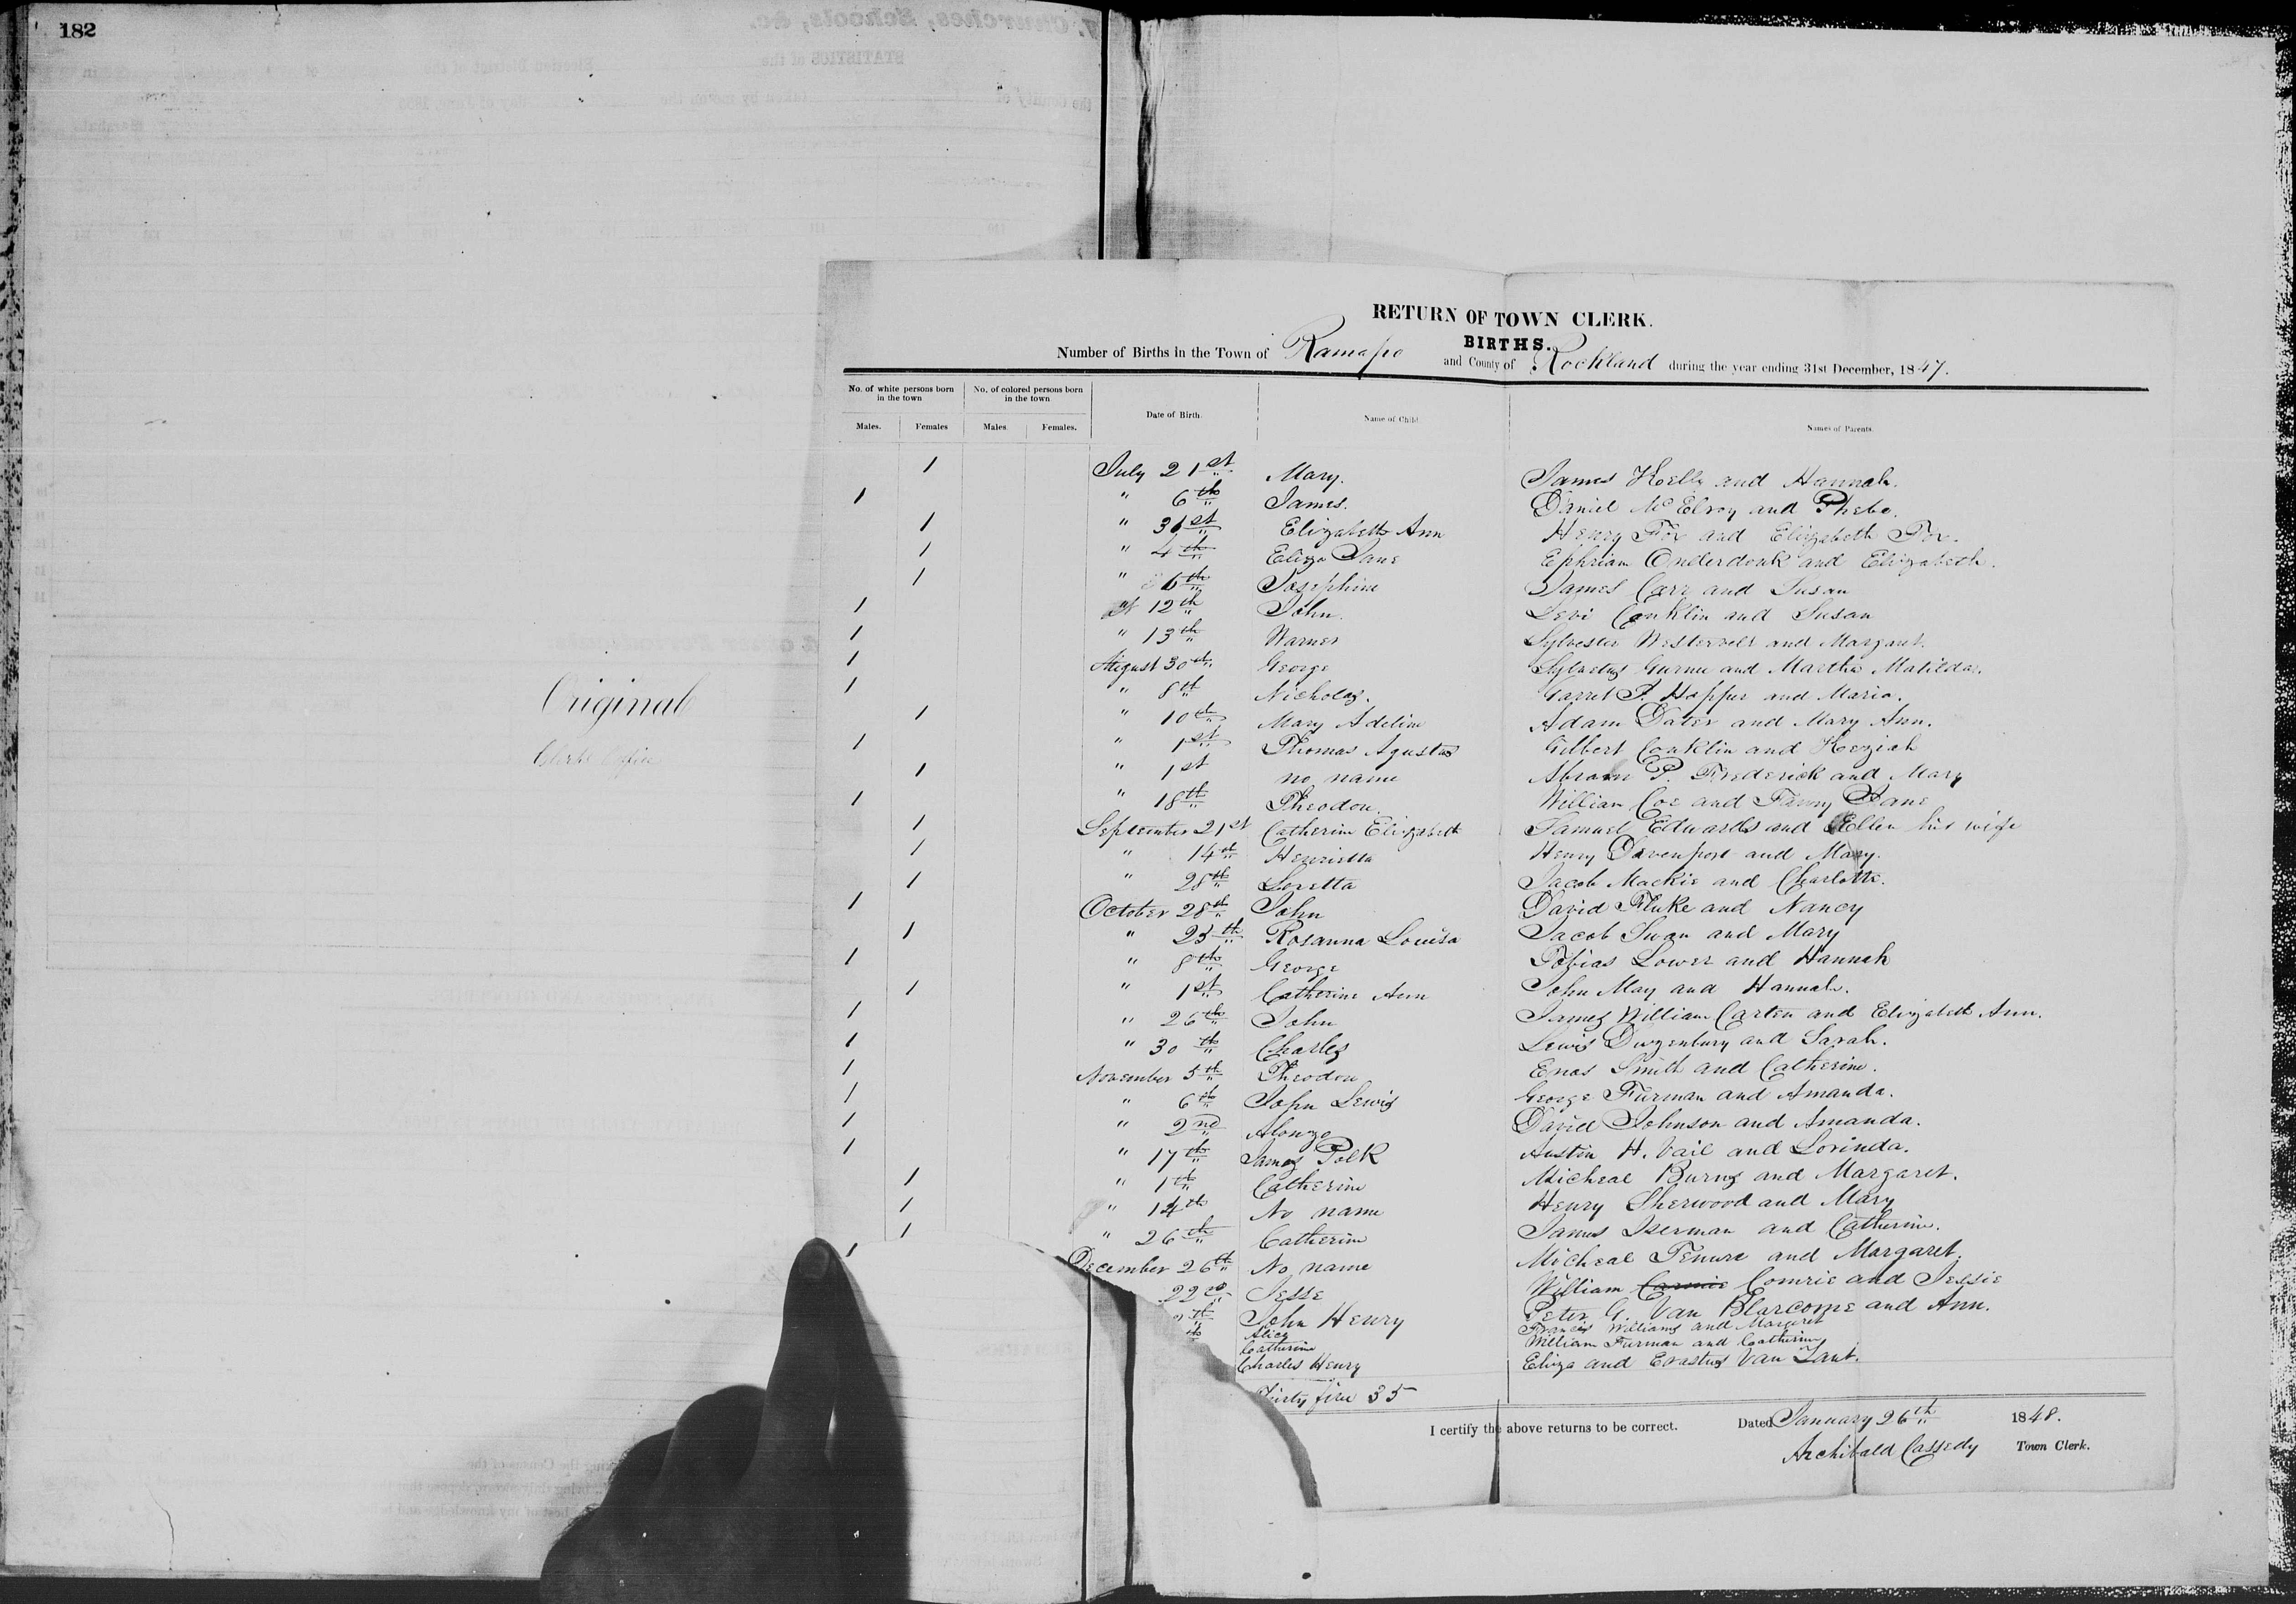 182
Original
Clerks Office
RETURN OF TOWN CLERK.
BIRTHS.
Number of Births in the Town of Ramapo and County of Rockland during the year ending 31st December, 1847.
No. of white persons born in the town No. of colored persons born in the town Date of Birth. Name of Child. Names of Parents.
Males. Females Males. Females.
1 July 21st Mary. James Kelly and Hannah.
1 " 6th James. Daniel McElroy and Phebe.
1 " 31st Elizabeth Ann Henry Fox and Elizabeth Fox.
1 " 4th Eliza Jane Ephriam Onderdonk and Elizabeth.
1 " 6th Josephine James Carr and Susan
1 " 12th John. Levi Conklin and Susan
1 " 13th Warner Sylvester Westervelt and Margaret.
1 August 30th George Gurnee and Martha Matilda.
1 " 8th Nicholas. Garret P. Hopper and Maria.
1 " 10th Mary Adeline Adam Dater and Mary Ann.
1 " 1st Thomas Agustus Gilbert Conklin and Keziah
1 " 1st no name Abram P. Frederick and Mary
1 " 18th Theodore William Coe and Fanny Jane
1 September 21st Catherine Elizabeth Samuel Edwards and Ellen his wife
1 " 14th Henrietta Henry Davenport and Mary.
1 " 28th Loretta Jacob Mackie and Charlotte.
1 October 28th John David Fluke and Nancy
1 " 25th Rosanna Louisa Jacob Swan and Mary
1 " 8th George Tobias Lower and Hannah
1 " 1st Catherine Ann John May and Hannah.
1 " 26th John James William Carten and Elizabeth Ann.
1 " 30th Charles Lewis Duzenbury and Sarah.
1 November 5th Theodore Enos Smith and Catherine.
1 " 6th John Lewis George Furman and Amanda.
1 " 2nd Alonzo David Johnson and Amanda.
1 " 17th James Polk Austin H. Vail and Lorinda.
1 " 1th Catherine Micheal Burns and Margaret.
1 " 14th No name Henry Sherwood and Mary
1 " 26th Catherine James Iserman and Catherine.
1 December 26th No name Micheal Tenure and Margaret.
22d Jesse William Comrie and Jessie
th John Henry Peter G. Van Blarcome and Ann.
th Alice Francis Williams and Margaret
Catherine William Furman and Catherine
Charles Henry Eliza and Erastus Van Zant.
Thirty five 35
I certify the above returns to be correct. Dated January 26th 1848.
Archibald Cassedy Town Clerk.